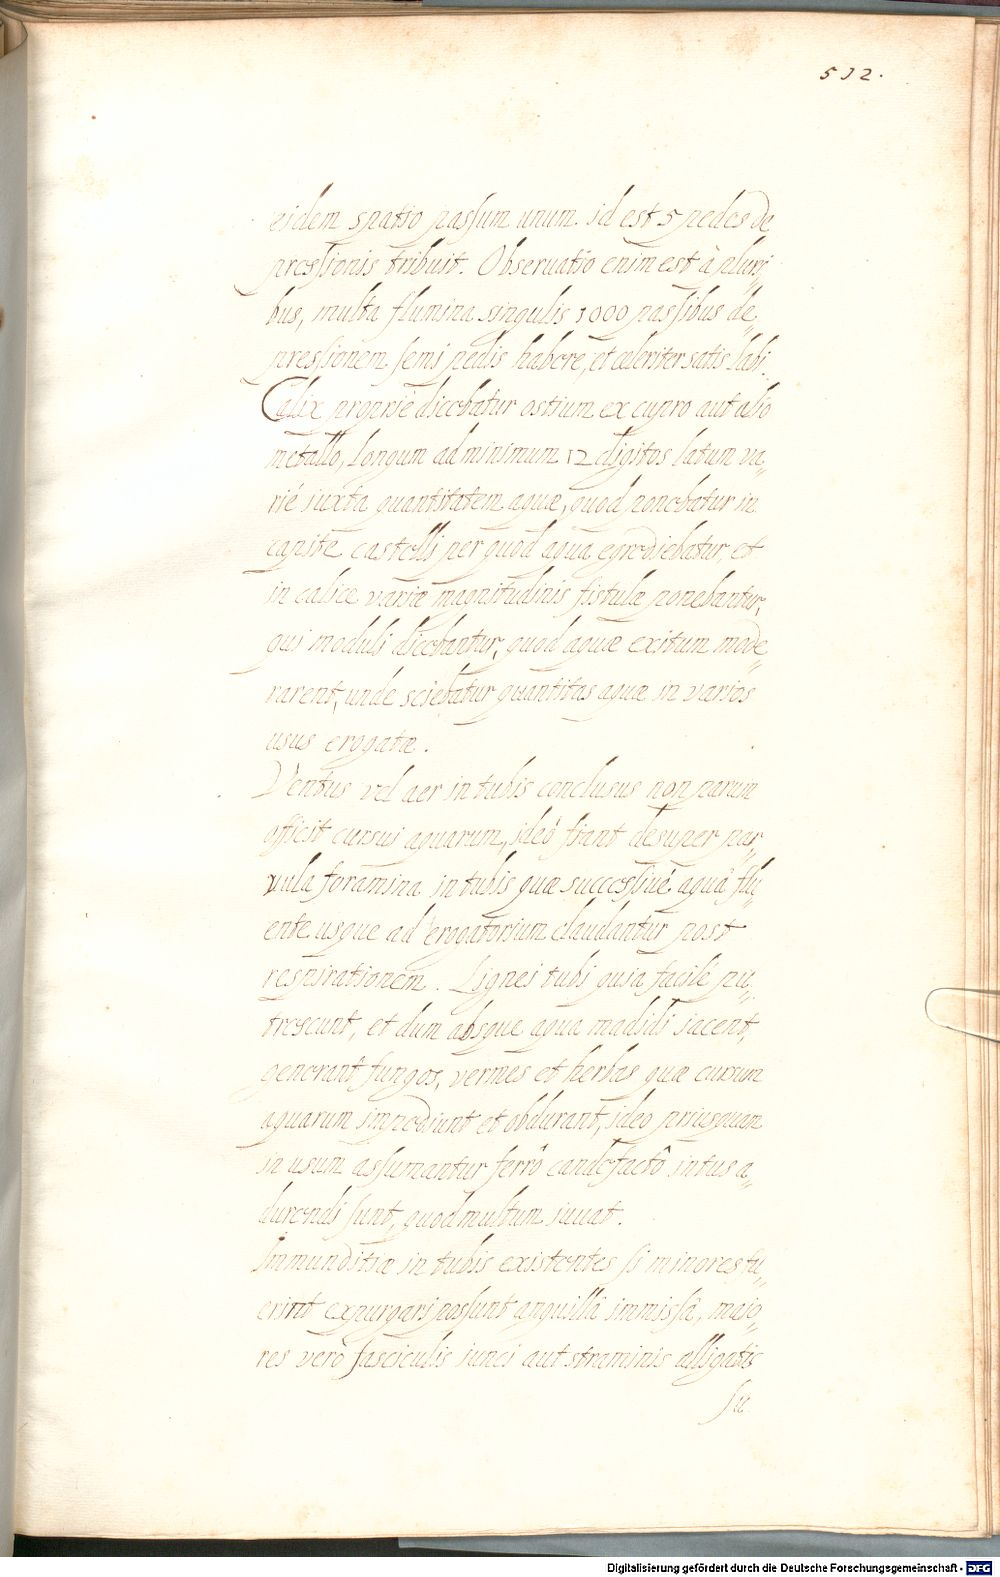 512.
eidem spatio passum unum. id est 5 pedes de
pressionis tribuit. Obseruatio enim est à pluri„
bus, multa flumina singulis 1000 passibus de„
pressionem semi pedis habere, et celeriter satis labi.
Calix propriè dicebatur ostium ex cupro aut alio
metallo, longum ad minimum 12 digitos latum va„
rié iuxta quantitatem aquæ, quod ponebatur in
capite castelli per quod aqua egrediebatur, et
in calice variæ magnitudinis fistulæ ponebantur,
qui moduli dicebantur, quod aquæ exitum mode„
rarent, unde sciebatur quantitas aquæ in varios
usus erogatæ.
Ventus vel aer in tubis conclusus non parum
officit cursui aquarum, ideò fiant desuper par„
vula foramina in tubis quæ successiuè aquâ flu„
ente usque ad erogatorium claudantur post
respirationem. Lignei tubi quia facilè pu„
trescunt, et dum absque aqua madidi iacent,
generant fungos, vermes et herbas quæ cursum
aquarum impediunt et obdurant, ideo priusquam
in usum assumantur ferrô candefactô intus a„
durendi sunt, quod multum iuuat.
Immunditiæ in tubis existentes si minores fu„
erint expurgari possunt anguillâ immissâ, maio„
res verò fasciculis iunci aut straminis alligatis
su
Digitalisierung gefördert durch die Deutsche Forschungsgemeinschaft - DFG